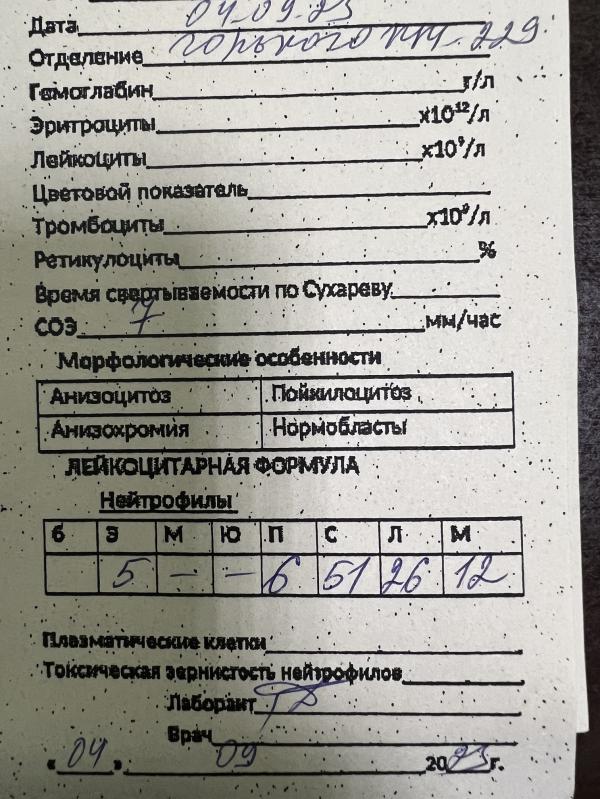 Дата 04.09.23
Отделение Горького
Гемоглабин г/л
Эритроциты х10¹²/л
Лейкоциты х10⁹/л
Цветовой показатель
Тромбоциты х10⁹/л
Ретикулоциты %
Время свертываемости по Сухареву
СОЭ 7 мм/час
Морфологические особенности
Анизоцитоз Пойкилоцитоз
Анизохромия Нормобласты
ЛЕЙКОЦИТАРНАЯ ФОРМУЛА
Нейтрофилы
б Э М Ю П С Л М
5 — — 6 51 26 12
Плазматические клетки
Токсическая зернистость нейтрофилов
Лаборант
Врач
«04» 09 2023г.